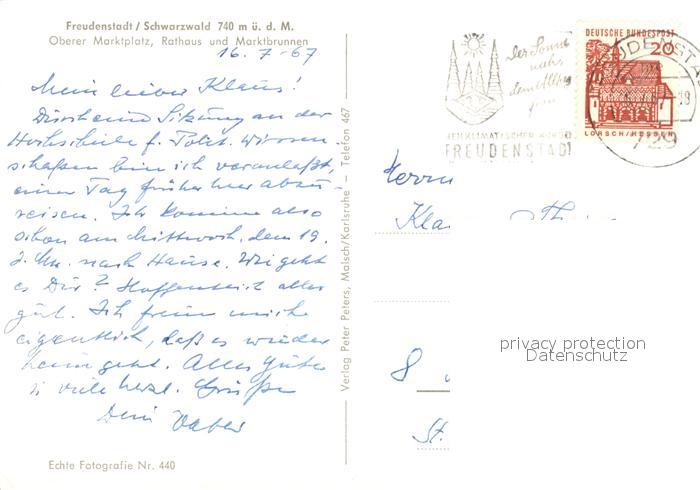 Freudenstadt / Schwarzwald 740 m ü. d. M.
Oberer Marktplatz, Rathaus und Marktbrunnen
16. 7. 67
Mein lieber Klaus!
Durch eine Sitzung an der
Hochschule f. Polit. Wissen-
schaften bin ich veranlaßt,
einen Tag früher hier abzu-
reisen. Ich komme also
schon am Mittwoch, dem 19.
nach Hause. Wie geht
es Dir? Hoffentlich alles
gut. Ich freue mich
eigentlich, daß es wieder
heim geht. Alles Gute
u. viele herzl. Grüße
Dein Vater
Echte Fotografie Nr. 440
Verlag Peter Peters, Malsch/Karlsruhe — Telefon 467
Der Sonne
nah
dem Alltag
fern
FREUDENSTADT
DEUTSCHE BUNDESPOST
20
LORSCH/HESSEN
729
Herrn
Kla
8
St.
privacy protection
Datenschutz